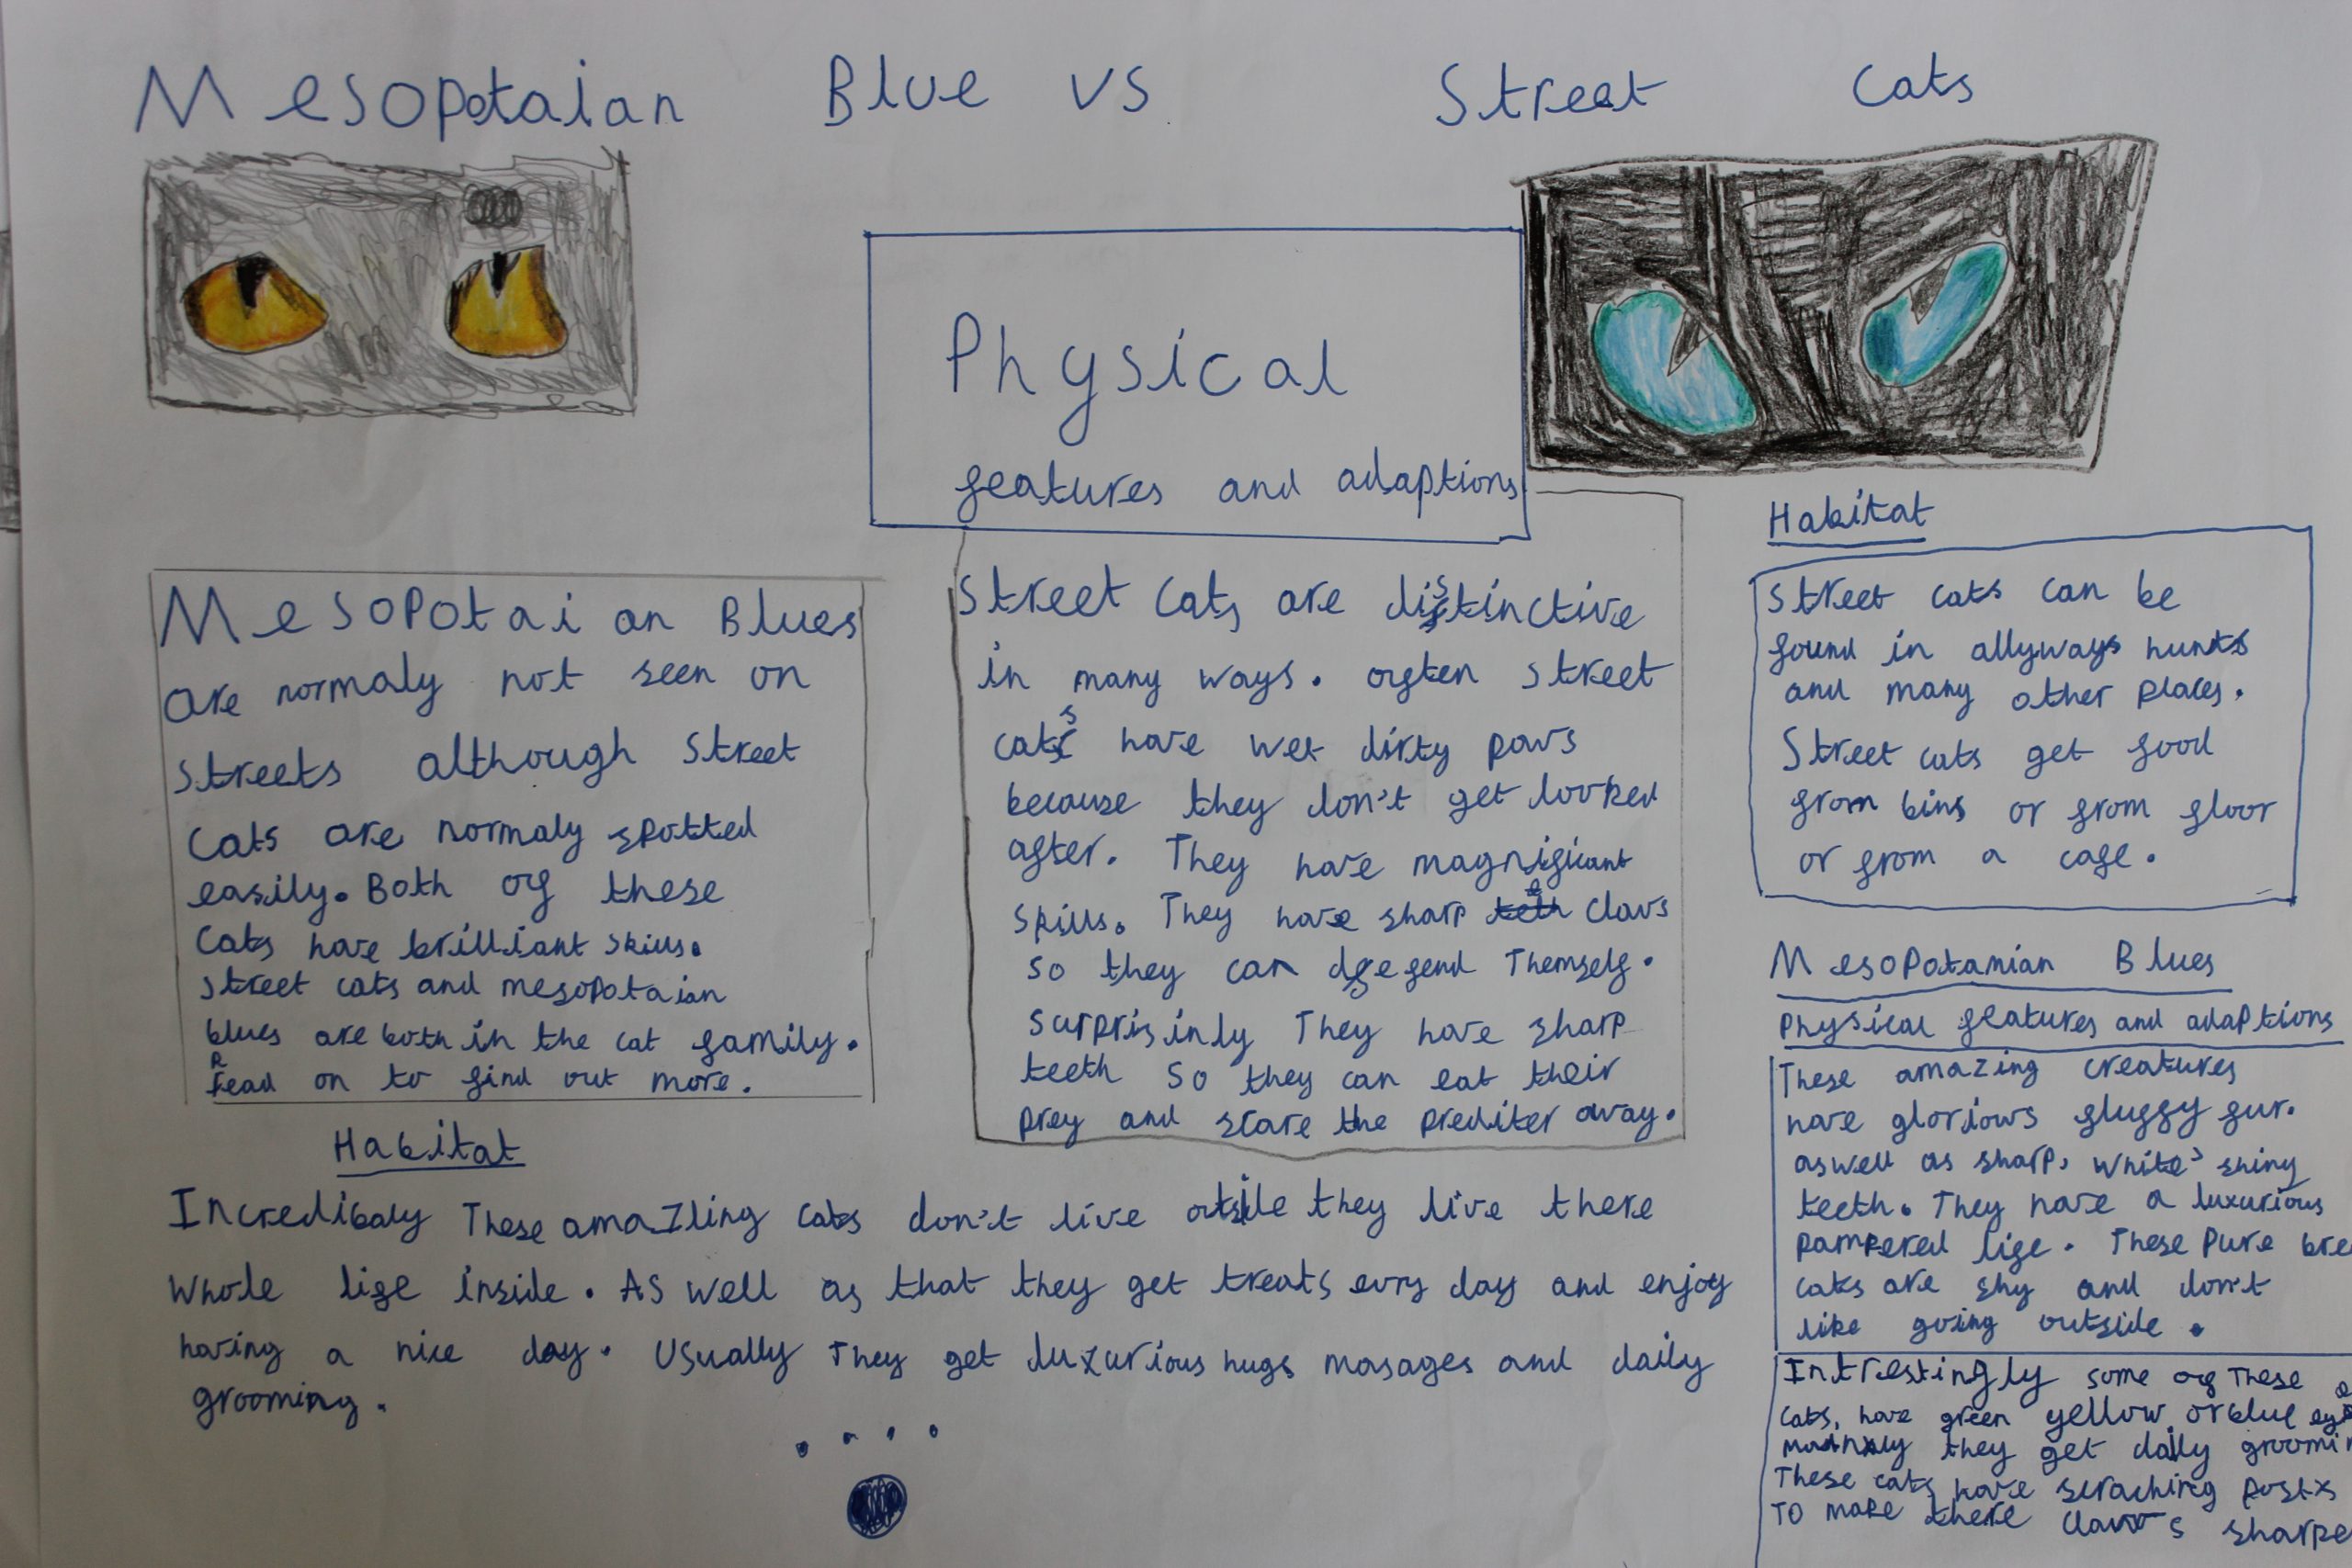 Mesopotaian Blue vs Street Cats
Physical
features and adaptions
Mesopotaian Blues
are normaly not seen on
streets although street
cats are normaly spotted
easily. Both of these
cats have brilliant skills.
street cats and mesopotaian
blues are both in the cat family.
Read on to find out more.
Habitat
Incredibaly These amazling cats don't live outside they live there
whole life inside. As well as that they get treats evry day and enjoy
having a nice day. Usually They get luxurious hugs masages and daily
grooming.
Street cats are distinctive
in many ways. often street
cats have wet dirty paws
because they don't get looked
after. They have magnificant
skills. They have sharp claws
so they can defend Themself.
surprisinly They have sharp
teeth so they can eat their
prey and scare the prediter away.
Habitat
Street cats can be
found in allyways hunts
and many other places.
Street cats get food
from bins or from floor
or from a cafe.
Mesopotamian Blues
Physical features and adaptions
These amazing creatures
have glorious fluffy fur.
aswell as sharp, white, shiny
teeth. They have a luxurious
pampered life. These pure bre
cats are shy and don't
like going outside.
Intrestingly some of These
cats, have green yellow or blue eye
they get daily groomin
These cats have scraching posts
To make there claws sharpe